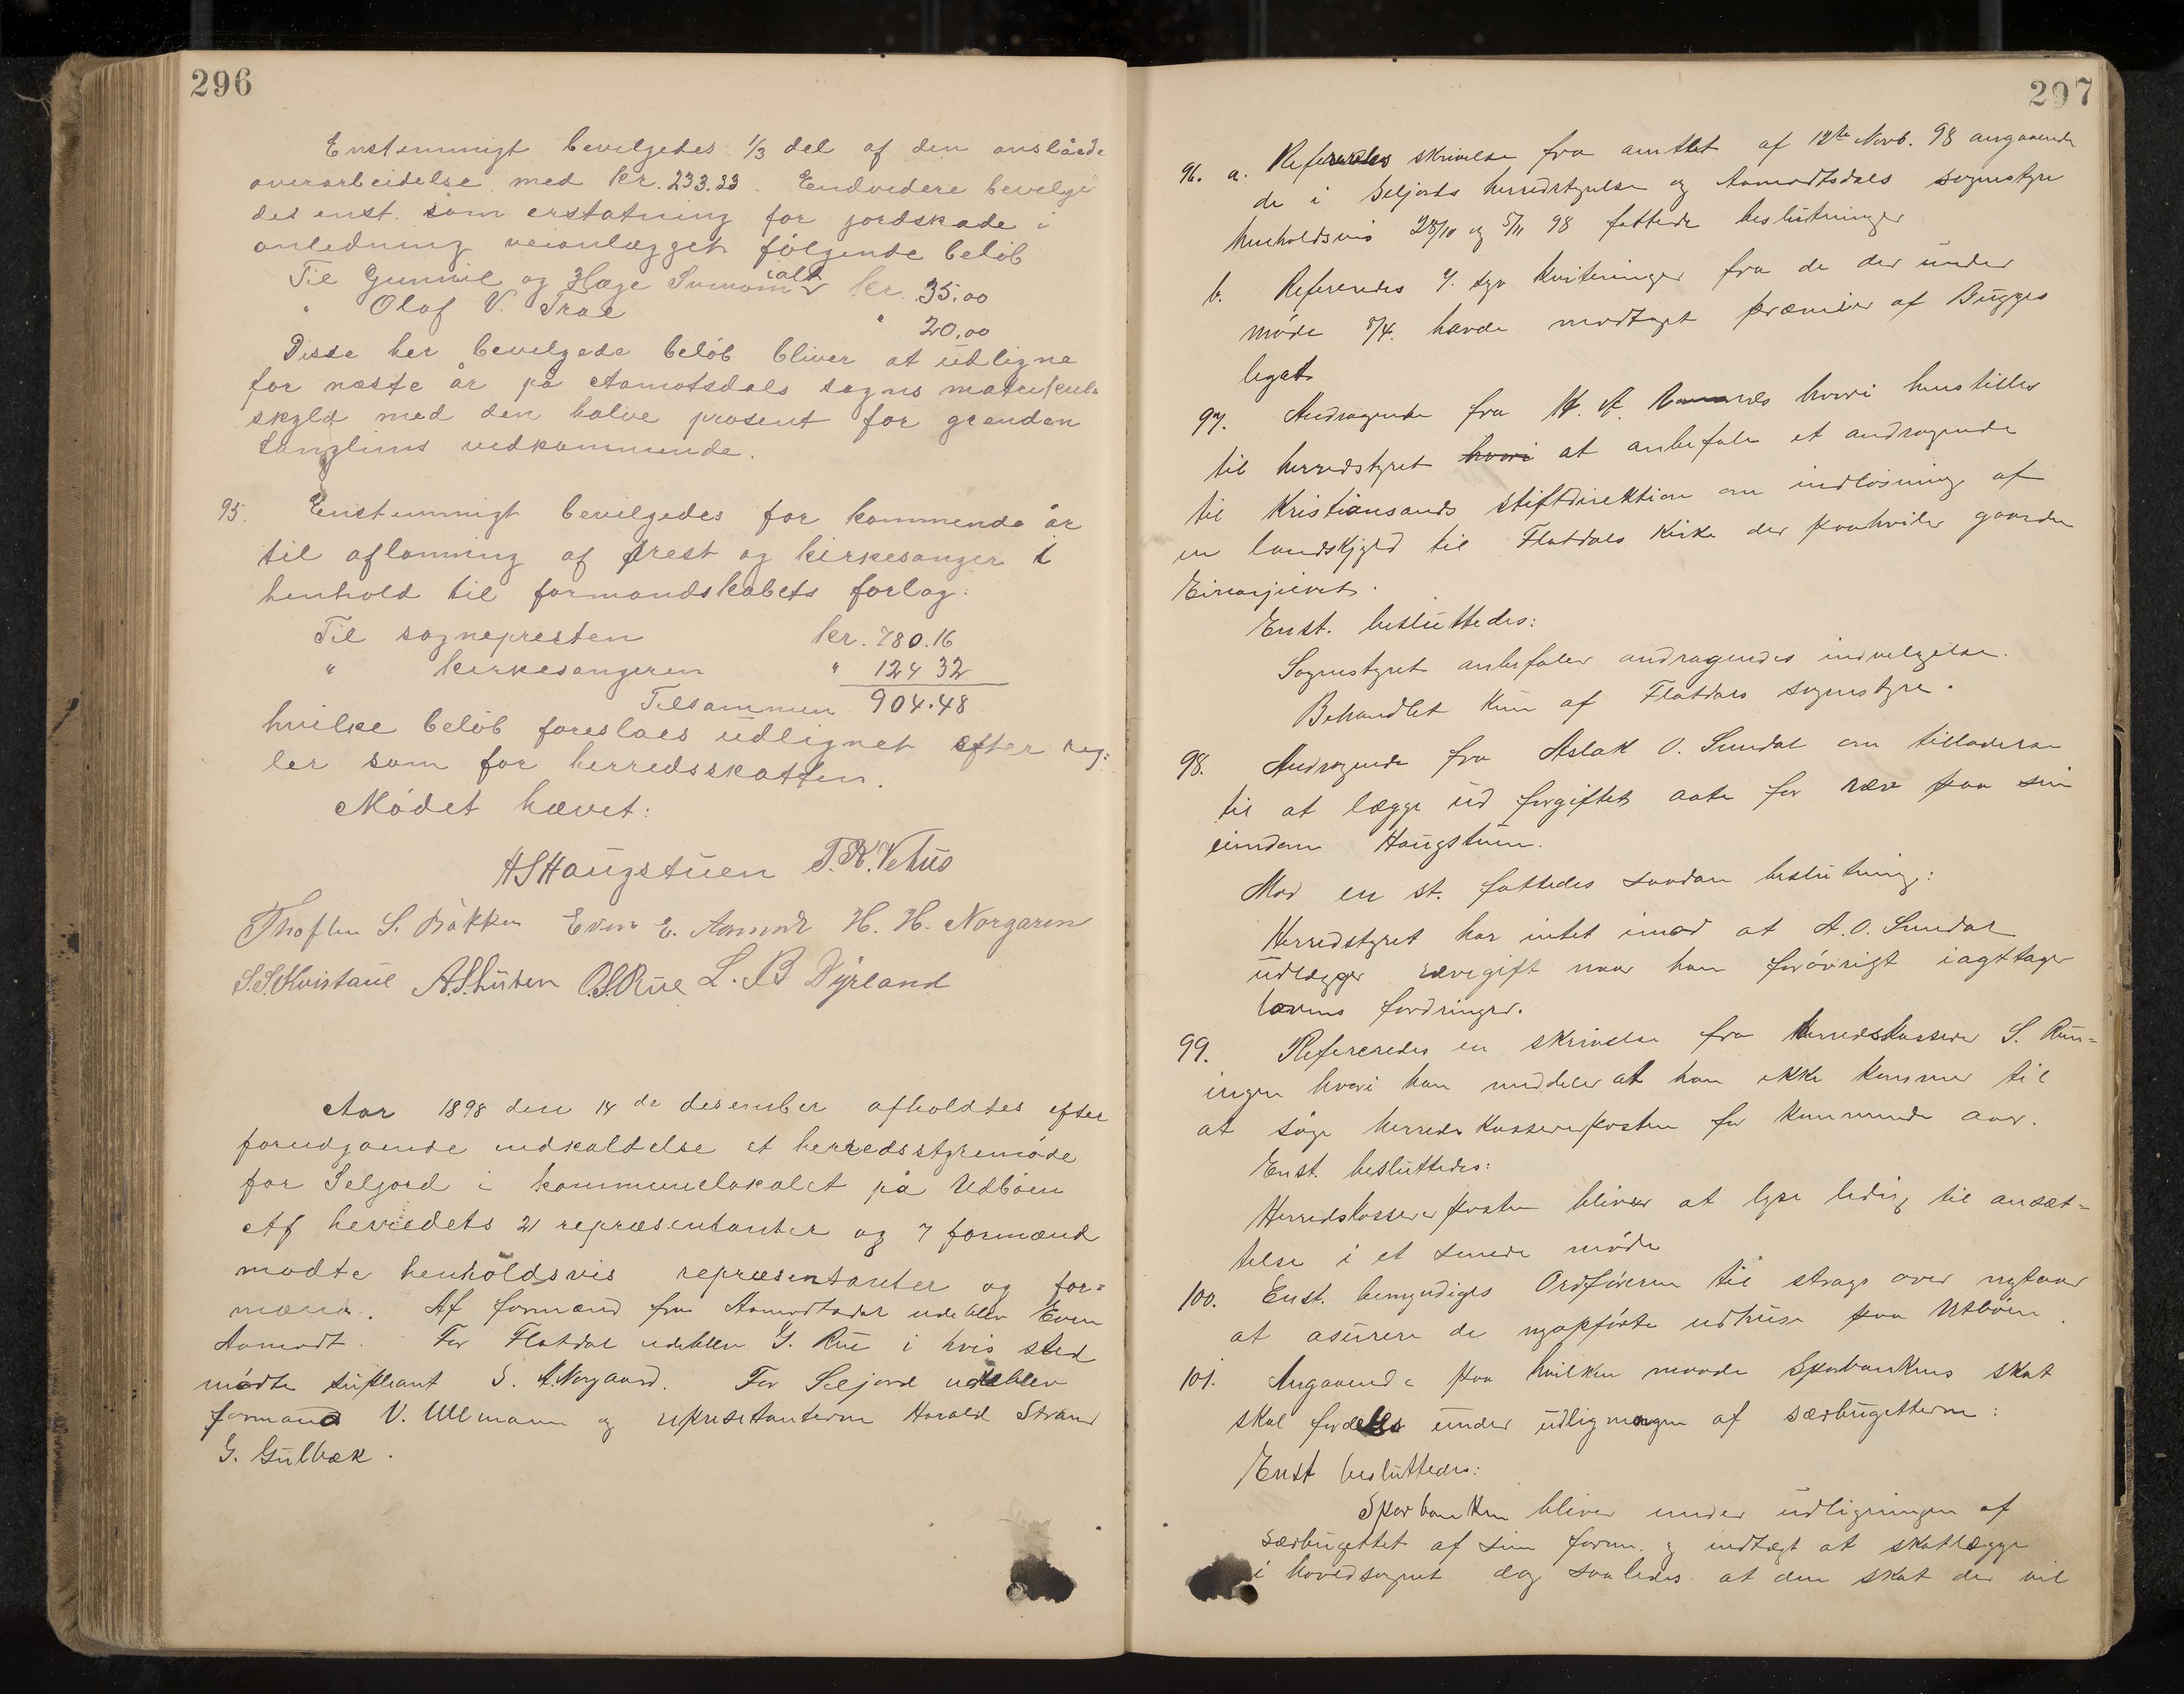 296
Enstemmigt bevilgedes 1/3 del af den anslåede
overarbeidelse med kr. 233.33. Endvidere bevilge
des enst. som erstatning for jordskade i
anledning veianlægget følgende beløb
Til Gunnil og Hæge ialt kr. 35.00
" Olaf V. Trae " 20.00
Disse her bevilgede beløb bliver at udligne
for næste år på Aamotsdals sogns matrikul
skyld med den halve prosent for grenden
Langlims vedkommende.
95. Enstemmigt bevilgedes for kommende år
til aflønning af prest og kirkesanger i
henhold til formandskabets forlag:
Til sognepresten kr. 780.16
" kirkesangeren " 124 32
Tilsammen 904.48
hvilke beløb foreslaes udlignet efter reg=
ler som for herredsskatten.
Mødet hævet:
H S Haugstuen T. K. Vehus
S. Bakken Even E. Aamodt H. H. Norgaren
S. S. Kvistaul O. S. Rue L. B Dyrland
Aar 1898 den 14 de desember afholdtes efter
foregående indkaldelse et herredsstyremøde
for Seljord i kommunelokalet på Utbøen
Af herredets 21 repræsentanter og 7 formænd
mødte henholdsvis repræsentanter og for=
mænd. Af formænd fra Aamodtsdal udeblev Even
Aamodt. For Flatdal udeblev G. Rue i hvis sted
mødte supleant S. A. Norgaard. For Seljord udeblev
formand V. Ullmann og repræsetanterne Harald Strand
G. Gulbæk.
297
96. a. Refereredes skrivelse fra amtet af 12te Novb. 98 angaaende
de i Seljords herredstyrelse og Aamodtsdals sognestyre
henholdsvis 28/10 og 5/11 98 fattede beslutninger
b. Refereredes 4. sgr kvitteringer fra de der under
møde 8/4. havde modtaget præmier af Bugges
legat
97. Andragende fra H. A. hvori henstilles
til herredstyret hvori at anbefale et andragende
til Kristiansands stiftdirektion om indløsning af
en landskyld til Flatdals Kirke der paahviler gaarden
Eirungjuvet.
Enst. besluttedes:
Sognestyret anbefaler andragendes indvilgelse.
Behandlet kun af Flatdals sognestyre.
98. Andragende fra Aslak O. Sundal om tilladelse
til at lægge ud forgiftet aate for ræve paa sin
eiendom Haugstuen.
Mod en st. fattedes saadan beslutning:
Herredstyret har intet imod at A. O. Sundal
udlægger rævegift naar han forøvrigt iagttager
lovens fordringer.
99. Refereredes en skrivelse fra Herredskasserer S. Run=
ingen hvori han meddeler at han ikke kommer til
at søge herredskassererposten for kommende aar.
Enst. besluttedes:
Herredskassererposten bliver at lyse ledig til ansæt=
telse i et senere møde
100. Enst. bemyndiges Ordføreren til strags over nytaar
at asurere de nyopførte udhuse paa Utbøen.
101. Angaaende paa hvilken maade Sparbankens skat
skal fordeles under udligningen af særbugetterne:
Enst besluttedes:
Sparbanken bliver under udligningen af
særbugettet af sin form. og indtægt at skatlægge
i hovedsognet dog saaledes at den skat der vil